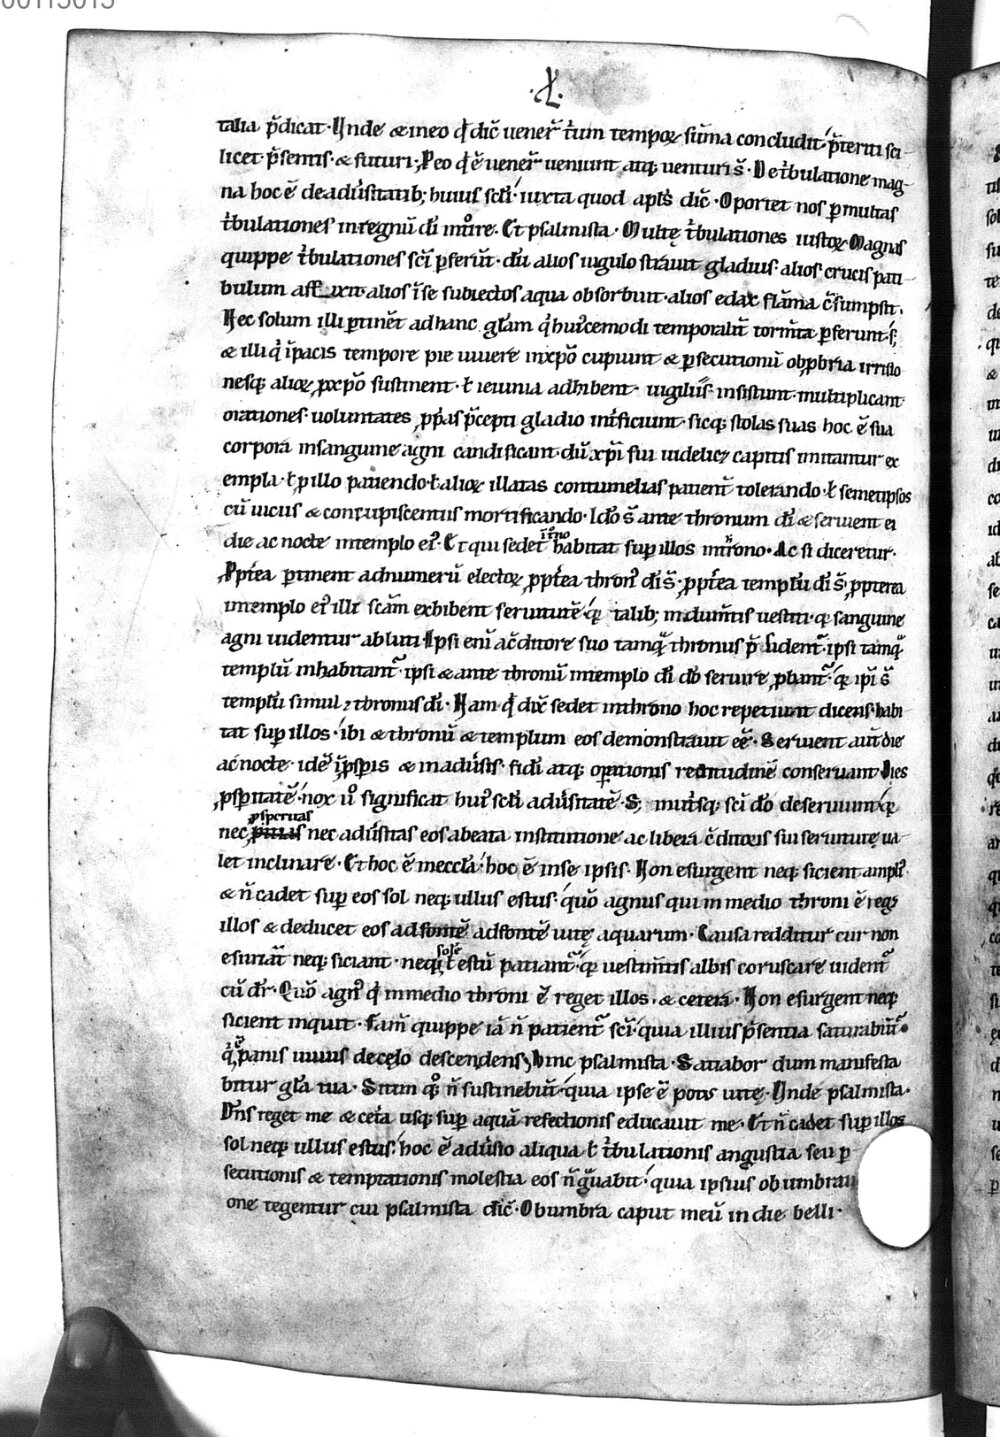 00113013
·L·
talia p̄dicat· Unde & in eo qd̄ dic̄ uener̄ t̓um tempoꝝ sūma concludit· p̄teriti sci
licet p̄sentis· & futuri· P eo qd̄ ē uener̄ ueniunt atq; uenturi s̄· De t̓bulatione mag-
na hoc ē de aduersitatib; huius scl̄i· iuxta quod apl̄s dic̄· Oportet nos ꝑ multas
t̓bulationes in regnū dī int̓re· Et psalmista· Multę t̓bulationes iustoꝝ· Magnas
quippe t̓bulationes sc̄i ꝑfer̄t· dū alios iugulo strauit gladius· alios crucis pati
bulum afflixit· alios in se subiectos aqua obsorbuit· alios edax flāma c̄sumpsit·
Nec solum illi ꝑtinēt ad hanc gl̄am qi hui᷒cemodi temporaliū torm̄ta ꝑferunt· s;
& illi qi in pacis tempore pie uiuere in xp̄o cupiunt & ꝑsecutionū obꝓbria irrisio
nesq; alioꝝ ꝓ xp̄o sustinent· ł ieiunia adhibent· uigiliis insistunt· multiplicant
orationes· uoluntates ꝓprias p̄cepti gladio int̓ficiunt· sicq; stolas suas hoc ē sua
corpora in sanguine agni candificant· dū xp̄i sui uidelicet capitis imitantur ex
empla· ł ꝓ illo patiendo· ł alioꝝ illatas contumelias patient̓ tolerando· ł semetipsos
cū uiciis & concupiscentiis mortificando· Ido s̄ ante thronum dī & seruient ei
die ac nocte in templo ei᷒· Et qui sedet in throno habitat suꝑ illos in throno· Ac si diceretur·
Ꝓpt̓ea ꝑtinent ad numerū electoꝝ ꝓpt̓ea thron᷒ dī s̄· ꝓpt̓ea templū dī s̄· ꝓpterea
in templo ei᷒ illi sc̄am exhibent seruitutē· qꝫ talib; indum̄tis uestiti· qꝫ sanguine
agni uidentur abluti· Ipsi enī ac̄ditore suo tamq̄ thronus p̄sident᷑· ipsi tamq̄
templū inhabitant᷑· ipsi & ante thronū in templo dī dō seruire ꝓbant᷑· qꝫ ipi s̄
templū simul & thronus dī· Nam qd̄ dix̄ sedet in throno hoc repetiuit dicens habi
tat suꝑ illos· ibi & thronū & templum eos demonstrauit eē· Seruient aut̄ die
ac nocte· idē in ꝓsp̓is & in aduersis· fidī atq; oꝑationis rectitudinē conseruant· Dies
ꝓsꝑitatē· nox u̓ significat hui᷒ scl̄i aduersitatē· S; intrisq; sc̄i dō deseruiunt· qꝫ
prosperitas
nec nec aduersitas eos a beata institutione ac libera c̄ditoris sui seruitute ua
let inclinare· Et hoc ē in ecc̄la· hoc ē in se ipsis· Non esurient neq; sicient ampli᷒·
& n̄ cadet suꝑ eos sol neq; ullus estus· quō agnus qui in medio throni ē reget
illos & deducet eos ad fontē ad fontē uitę aquarum· Causa redditur cur non
sole
esuriāt neq; siciant· neq; ł estū patiant᷑· qꝫ uestim̄tis albis coruscare uident᷑
cū dr̄· Quō agn᷒ qi in medio throni ē reget illos· & cetera· Non esurient neq;
sicient inquit· Fam̄ quippe iā n̄ patient᷑ sc̄i· quia illius p̄sentia saturabūt᷑
qi ē panis uiuus de cęlo descendens· Hinc psalmista· Satiabor dum manifesta
bitur gl̄a tua· Sitim qoqꝫ n̄ sustinebūt· quia ipse ē potus uitę· Unde psalmista·
Dn̄s reget me & cet̓a usq; suꝑ aquā refectionis educauit me· Et n̄ cadet suꝑ illos
sol neq; ullus estus· hoc ē adustio aliqua ł t̓bulationis angustia seu ꝑ
secutionis & temptationis molestia eos n̄ g̓uabit· quia ipsius obumbrati
one tegentur cui psalmista dic̄· Obumbra caput meū in die belli·